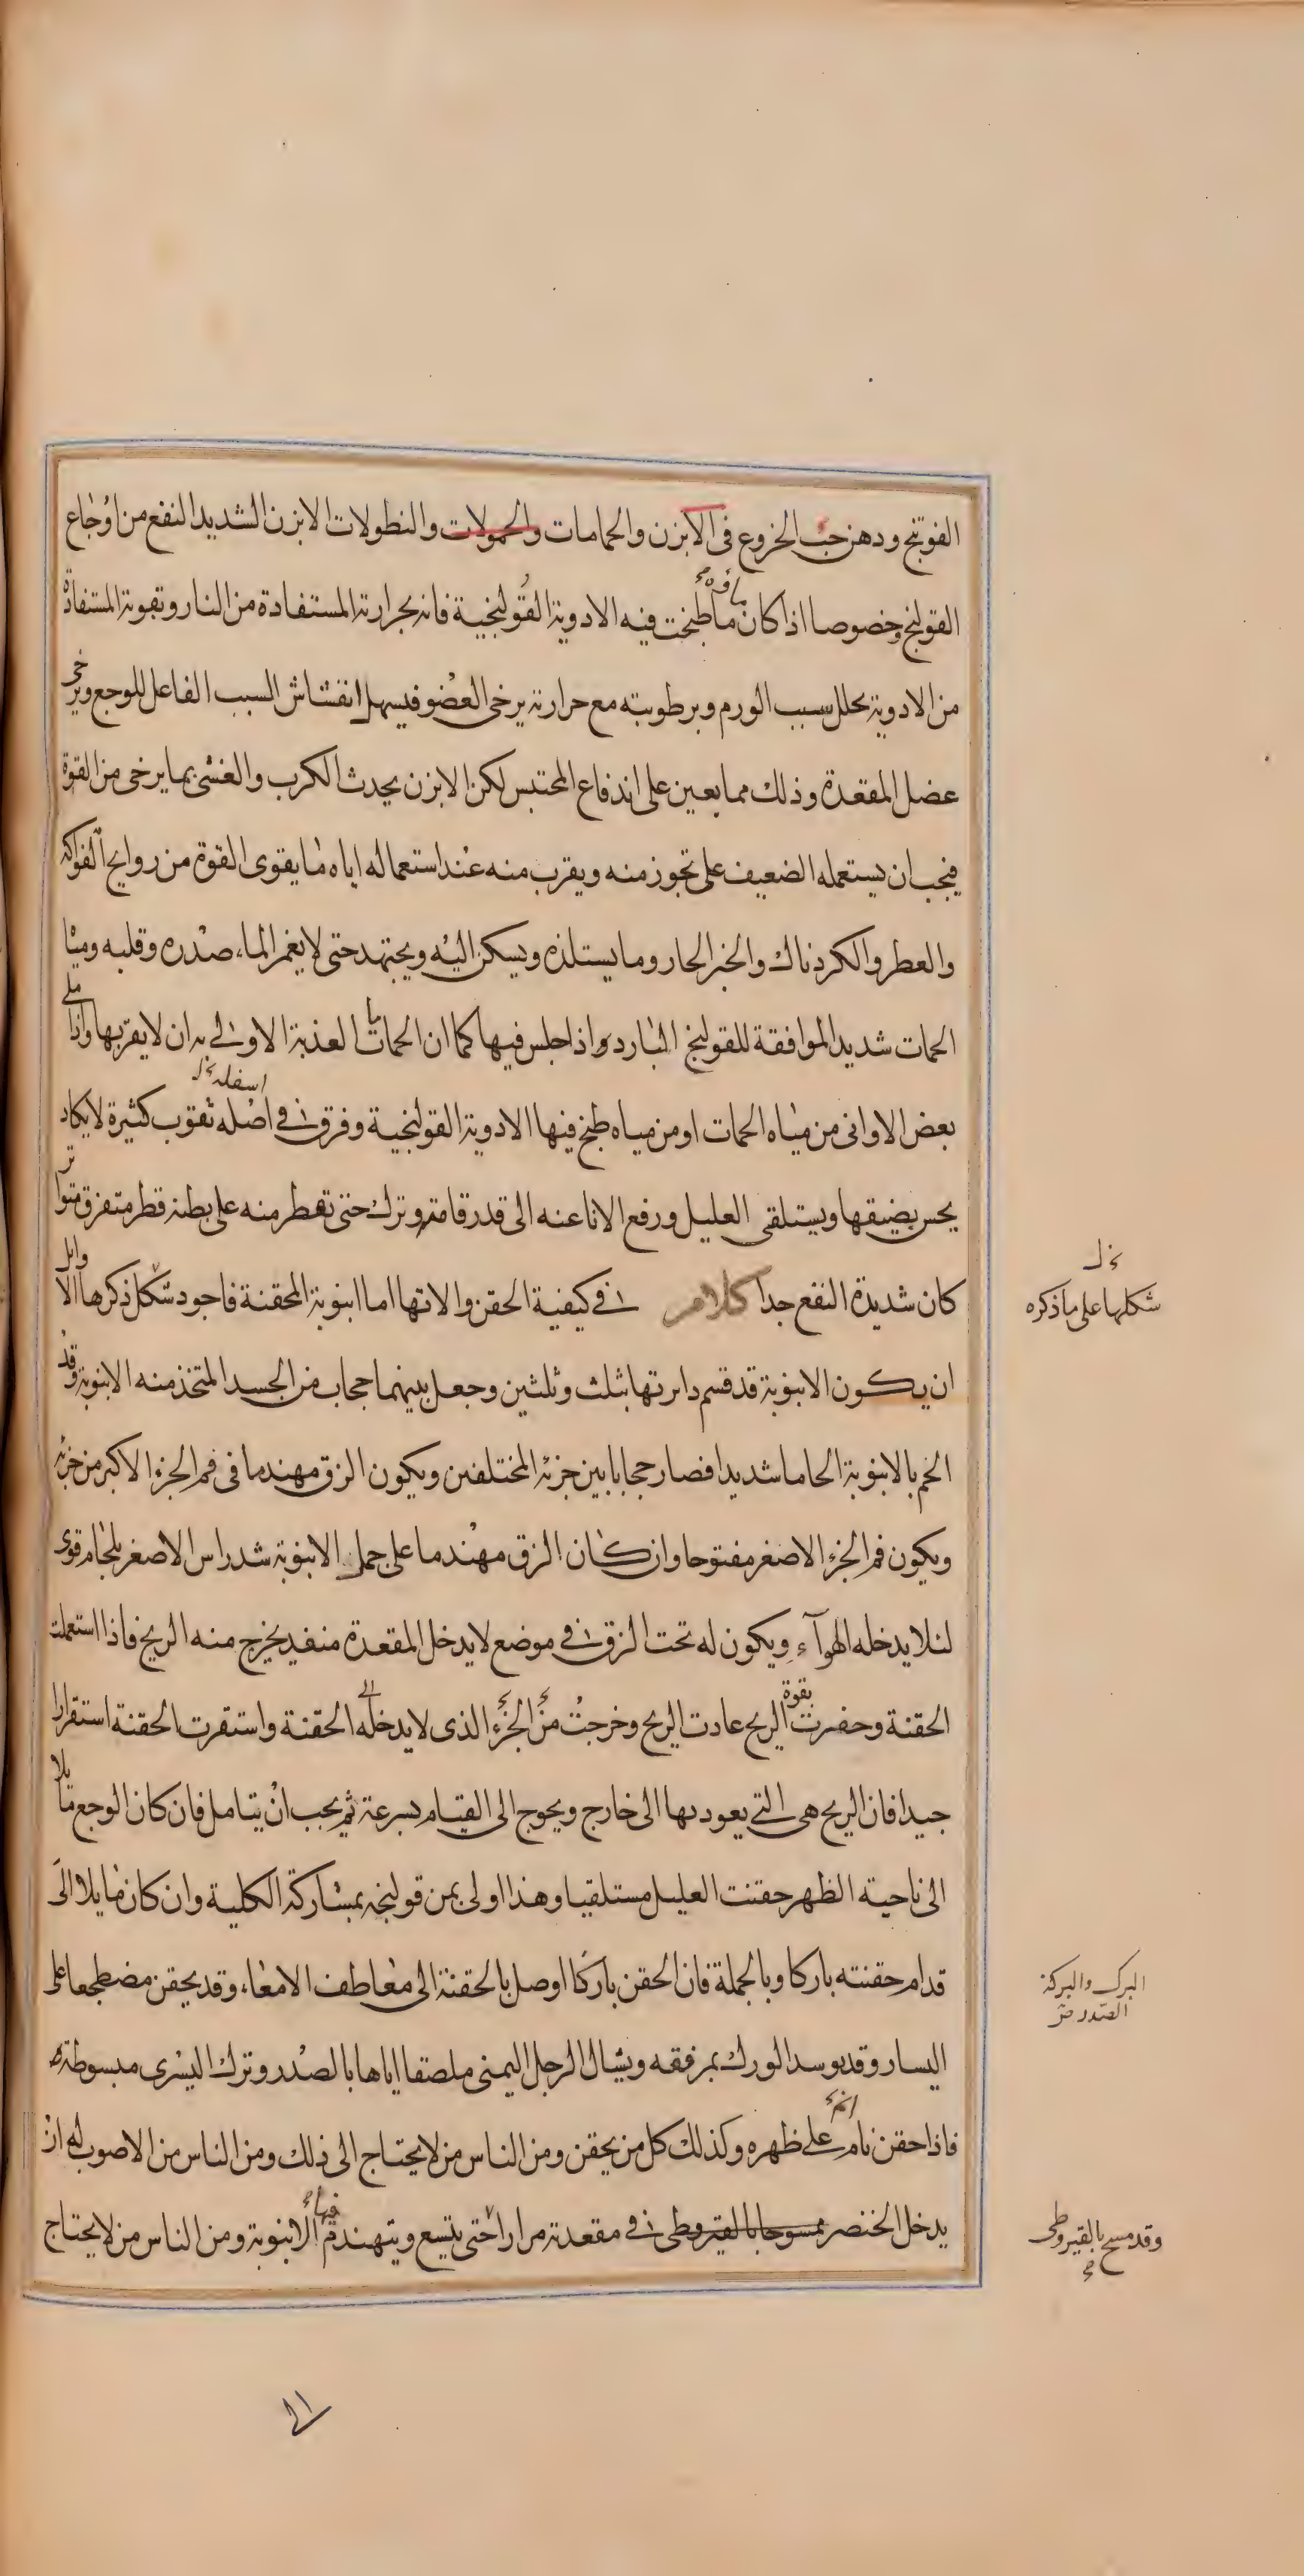 الفوتنج ودهن حب الخروع فى الابزن والحمامات والحمولات والنطولات الابزن الشديد النفع من اوجاع
القولنج وخصوصا اذا كان ما طبخت فيه الادوية القولنجية فانه بحرارته المستفادة من النار وبقوته المستفادة
ماؤه
من الادوية يحلل سبب الورم وبرطوبته مع حرارته يرخى العضو فيسهل انفشاش السبب الفاعل للوجع ويرخى
عضل المقعدة وذلك مما يعين على اندفاع المحتبس لكن الابزن يحدث الكرب والغشى بما يرخى من القوة
فيجب ان يستعمله الضعيف على تجوز منه ويقرب منه عند استعماله اياه ما يقوى القوة من روايح الفواكه
والعطر والكردناك والخبز الحار وما يستلذه ويسكن اليه ويجتهد حتى لا يغمر الماء صدره وقلبه ومياه
الحمات شديد الموافقة للقولنج البارد واذا جلس فيها كما ان الحمات العذبة الاولى به ان لا يقربها واذا ملى
بعض الاوانى من مياه الحمات او من مياه طبخ فيها الادوية القولنجية وفرق فى اصله ثقوب كثيرة لا يكاد
اسفله
يحس بضيقها ويستلقى العليل ورفع الانا عنه الى قدر قامة وترك حتى تقطر منه على بطنه قطر متفرق متواتر
كان شديدة النفع جدا كلام فى كيفية الحقن والاتها اما انبوبة المحقنة فاجود شكل ذكرها الاوايل
شكلها على ما ذكره
ان يكون الانبوبة قد قسم دايرتها بثلث وثلثين وجعل بينهما حجاب من الجسد المتخذ منه الانبوبة وقد
الحم بالانبوبة الحاما شديدا فصار حجابا بين جزئه المختلفين ويكون الزق مهندما فى فم الجزء الاكبر من جزئه
ويكون فم الجزء الاصغر مفتوحا وان كان الزق مهندما على جمل الانبوبة شد راس الاصغر بلجام قوى
لئلا يدخله الهوآء ويكون له تحت الزق فى موضع لا يدخل المقعدة منفد يخرج منه الريح فاذا استعملت
الحقنة وحفزت بقوة الريح عادت الريح وخرجت من الجزء الذى لا يدخله الحقنة واستقرت الحقنة استقرارا
جيدا فان الريح هى التى يعود بها الى خارج ويحوج الى القيام بسرعة ثم يجب ان يتامل فان كان الوجع مايلا
الى ناحية الظهر حقنت العليل مستلقيا وهذا اولى بمن قولنجه بمشاركة الكلية وان كان مايلا الى
قدام حقنته باركا وبالجملة فان الحقن باركا اوصل بالحقنة الى معاطف الامعاء وقد يحقن مضطجعا على
البرك والبركة
الصدر
اليسار وقد يوسد الورك بمرفقه ويشال الرجل اليمنى ملصقا اياها بالصدر وترك اليسرى مبسوطة
فاذا حقن نام على ظهره وكذلك كل من يحقن ومن الناس من لا يحتاج الى ذلك ومن الناس من الاصوب له ان
يدخل الخنصر ممسوحا بالقيروطى فى مقعدته مرارا حتى يتسع ويتهندم الانبوبة ومن الناس من لا يحتاج
فيها
وقد مسح بالقيروطى